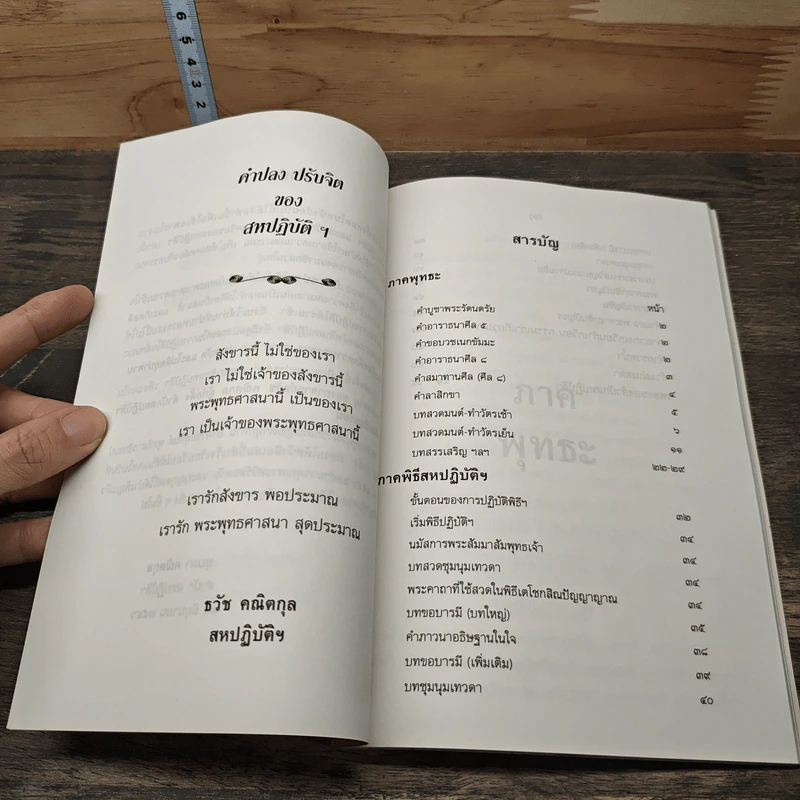 6 5 4 3 2
คำปลง ปรับจิต
ของ
สหปฏิบัติ ฯ
สังขารนี้ ไม่ใช่ของเรา
เรา ไม่ใช่เจ้าของสังขารนี้
พระพุทธศาสนานี้ เป็นของเรา
เรา เป็นเจ้าของพระพุทธศาสนานี้
เรารักสังขาร พอประมาณ
เรารัก พระพุทธศาสนา สุดประมาณ
ธวัช คณิตกุล
สหปฏิบัติฯ
สารบัญ
ภาคพุทธะ
หน้า
คำบูชาพระรัตนตรัย ๒
คำอาราธนาศีล ๕ ๒
คำขอบวชเนกขัมมะ ๒
คำอาราธนาศีล ๘ ๓
คำสมาทานศีล (ศีล ๘) ๔
คำลาสิกขา ๕
บทสวดมนต์-ทำวัตรเช้า ๖
บทสวดมนต์-ทำวัตรเย็น ๑๑
บทสรรเสริญ ฯลฯ ๒๒-๒๙
ภาคพิธีสหปฏิบัติฯ
ขั้นตอนของการปฏิบัติพิธีฯ ๓๒
เริ่มพิธีปฏิบัติฯ ๓๔
นมัสการพระสัมมาสัมพุทธเจ้า ๓๔
บทสวดชุมนุมเทวดา ๓๔
พระคาถาที่ใช้สวดในพิธีเตโชกสิณปัญญาญาณ ๓๔
บทขอบารมี (บทใหญ่) ๓๕
คำภาวนาอธิษฐานในใจ ๓๘
บทขอบารมี (เพิ่มเติม) ๓๙
บทชุมนุมเทวดา ๔๐
ภาค
พุทธะ